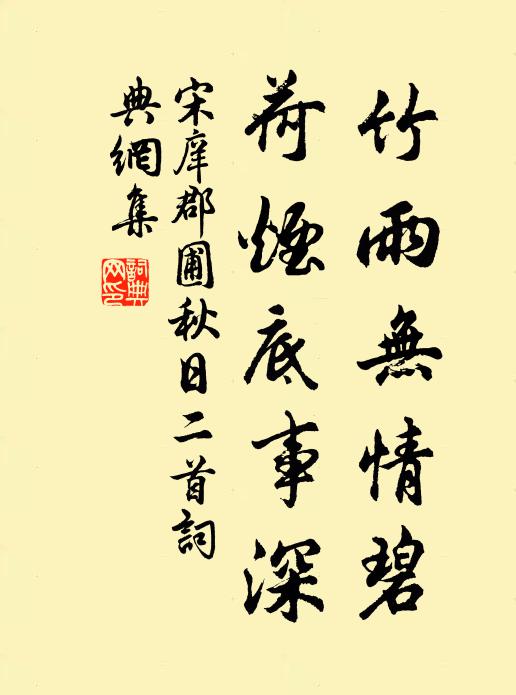 竹雨無情碧
荷煙底事深
宋庠郡圃秋日二首詞
典網集
詞典網印